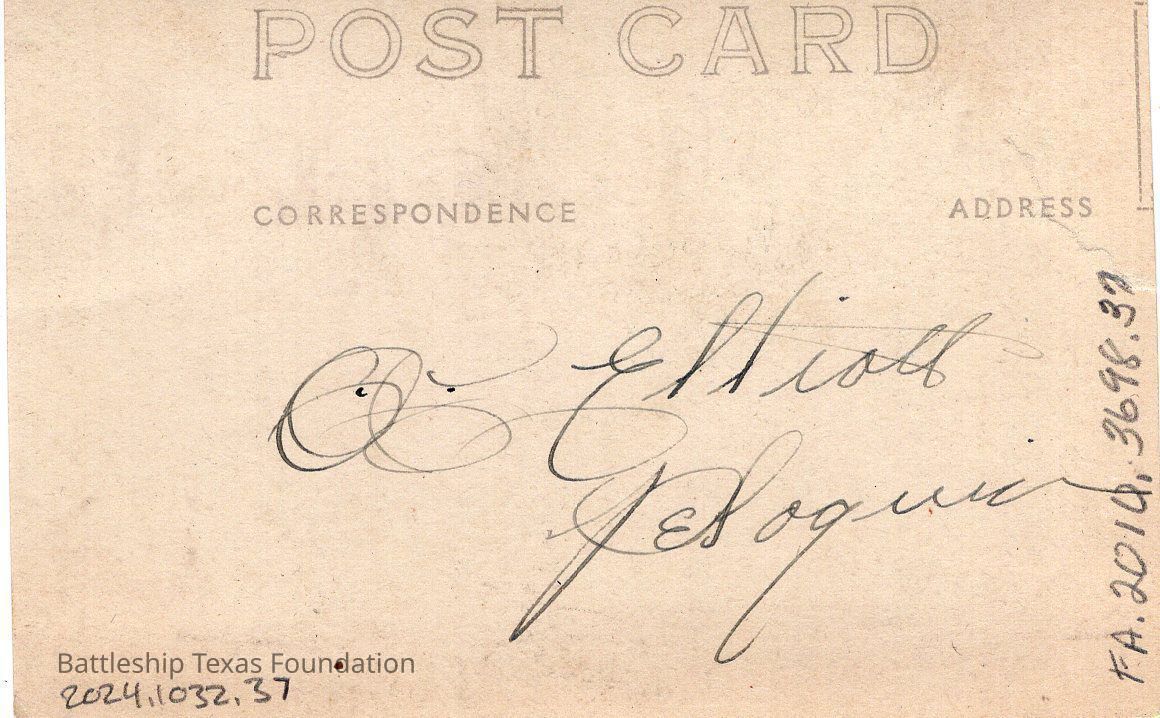 POST CARD
CORRESPONDENCE ADDRESS
Elliott
FA.2014.3698.37
Battleship Texas Foundation
2024.1032.37